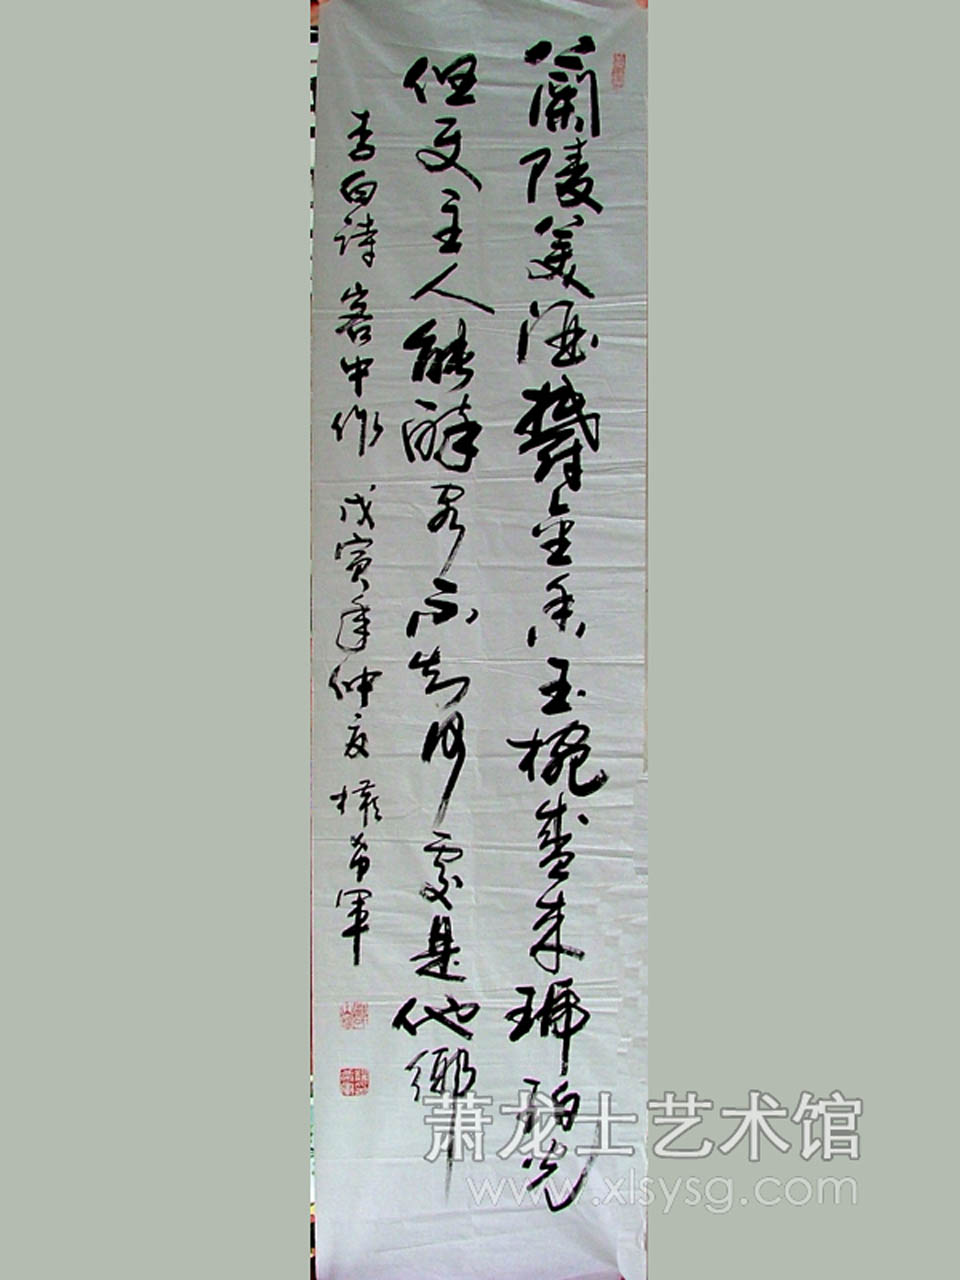 蘭陵美酒鬱金香玉椀盛来琥珀光
但使主人能醉客不知何處是他鄉
李白詩 客中作 戊寅年仲夏 權希軍
萧龙士艺术馆
www.xlsysg.com